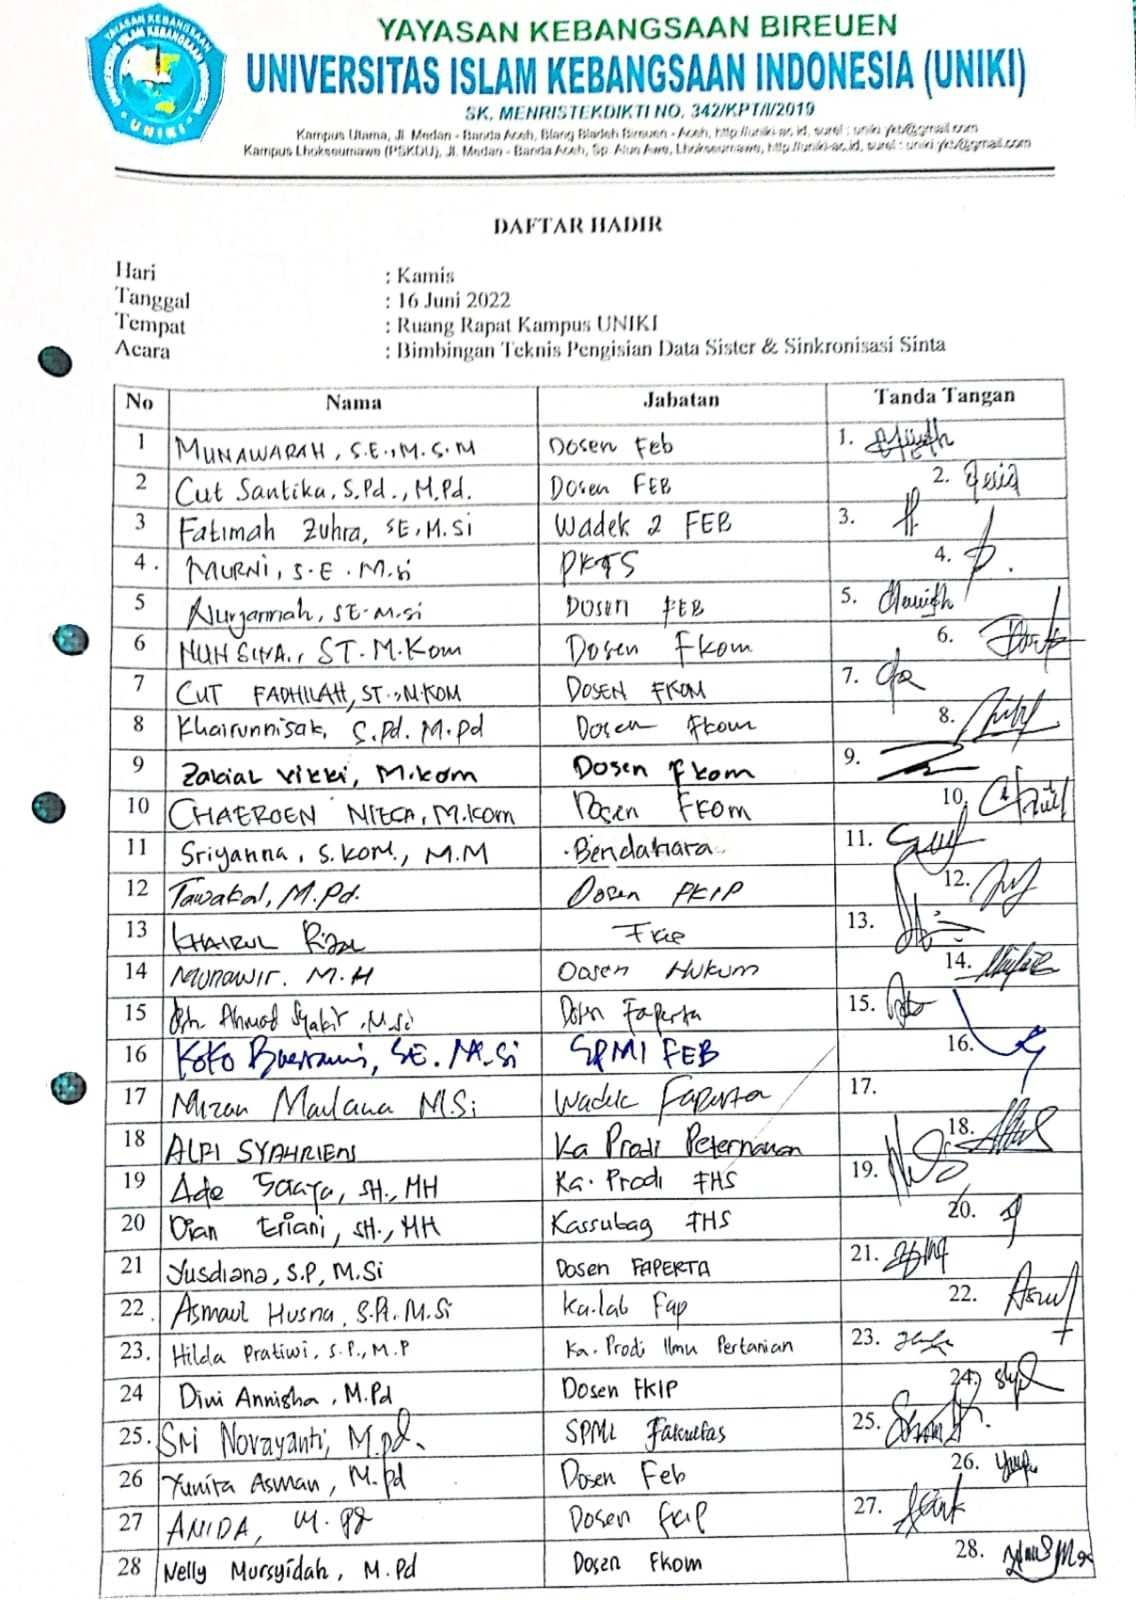 YAYASAN KEBANGSAAN BIREUEN
UNIVERSITAS ISLAM KEBANGSAAN INDONESIA (UNIKI)
SK. MENRISTEKDIKTI NO. 342/KPT/I/2019
Kampus Utama, Jl. Medan - Banda Aceh, Blang Bladeh Bireuen - Aceh, http://uniki-ac.id, surel : uniki.ykb@gmail.com
Kampus Lhokseumawe (PSKDU), Jl. Medan - Banda Aceh, Sp. Alue Awe, Lhokseumawe, http://uniki-ac.id, surel : uniki.ykb@gmail.com
YAYASAN KEBANGSAAN
UNIKI
DAFTAR HADIR
Hari : Kamis
Tanggal : 16 Juni 2022
Tempat : Ruang Rapat Kampus UNIKI
Acara : Bimbingan Teknis Pengisian Data Sister & Sinkronisasi Sinta
No Nama Jabatan Tanda Tangan
1 MUNAWARAH, S.E., M.S.M Dosen Feb 1.
2 Cut Santika, S.Pd., M.Pd. Dosen FEB 2.
3 Fatimah Zuhra, SE, M.Si Wadek 2 FEB 3.
4. MURNI, S.E. M.Si PKTS 4.
5 Nurjannah, SE. M.Si Dosen FEB 5.
6 NUH SINA., ST. M.Kom Dosen Fkom 6.
7 CUT FADHILAH, ST., M.KOM DOSEN FKOM 7.
8 Khairunnisak, S.Pd. M.Pd Dosen Fkom 8.
9 Zakial Vikki, M.kom Dosen fkom 9.
10 CHAEROEN NIESA, M.Kom Dosen FKOM 10.
11 Sriyanna, S.KOM., M.M Bendahara 11.
12 Tawakal, M.Pd. Dosen FKIP 12.
13 KHAIRUL Rizal Fkip 13.
14 Munawir. M.H Dosen Hukum 14.
15 Ahmad Syakir, M.Si Dosen Faperta 15.
16 KoKo SE. M.Si SPMI FEB 16.
17 Mizan Maulana M.Si Wadek Faperta 17.
18 ALFI SYAHRIENI Ka Prodi Peternakan 18.
19 Ade Soraya, SH., MH Ka. Prodi FHS 19.
20 Dian Eriani, SH., MH Kassubag FHS 20.
21 Yusdiana, S.P, M.Si Dosen FAPERTA 21.
22. Asmaul Husna, S.Pt. M.Si Ka.lab Fap 22.
23. Hilda Pratiwi, S.P., M.P Ka. Prodi Ilmu Pertanian 23.
24 Dini Annisha, M.Pd Dosen FKIP 24.
25. Sri Novayanti, M.pd. SPMI Fakultas 25.
26 Yunita Asman, M.pd Dosen Feb 26.
27 ANIDA, M.pd Dosen fkip 27.
28 Nelly Mursyidah, M.Pd Dosen Fkom 28.